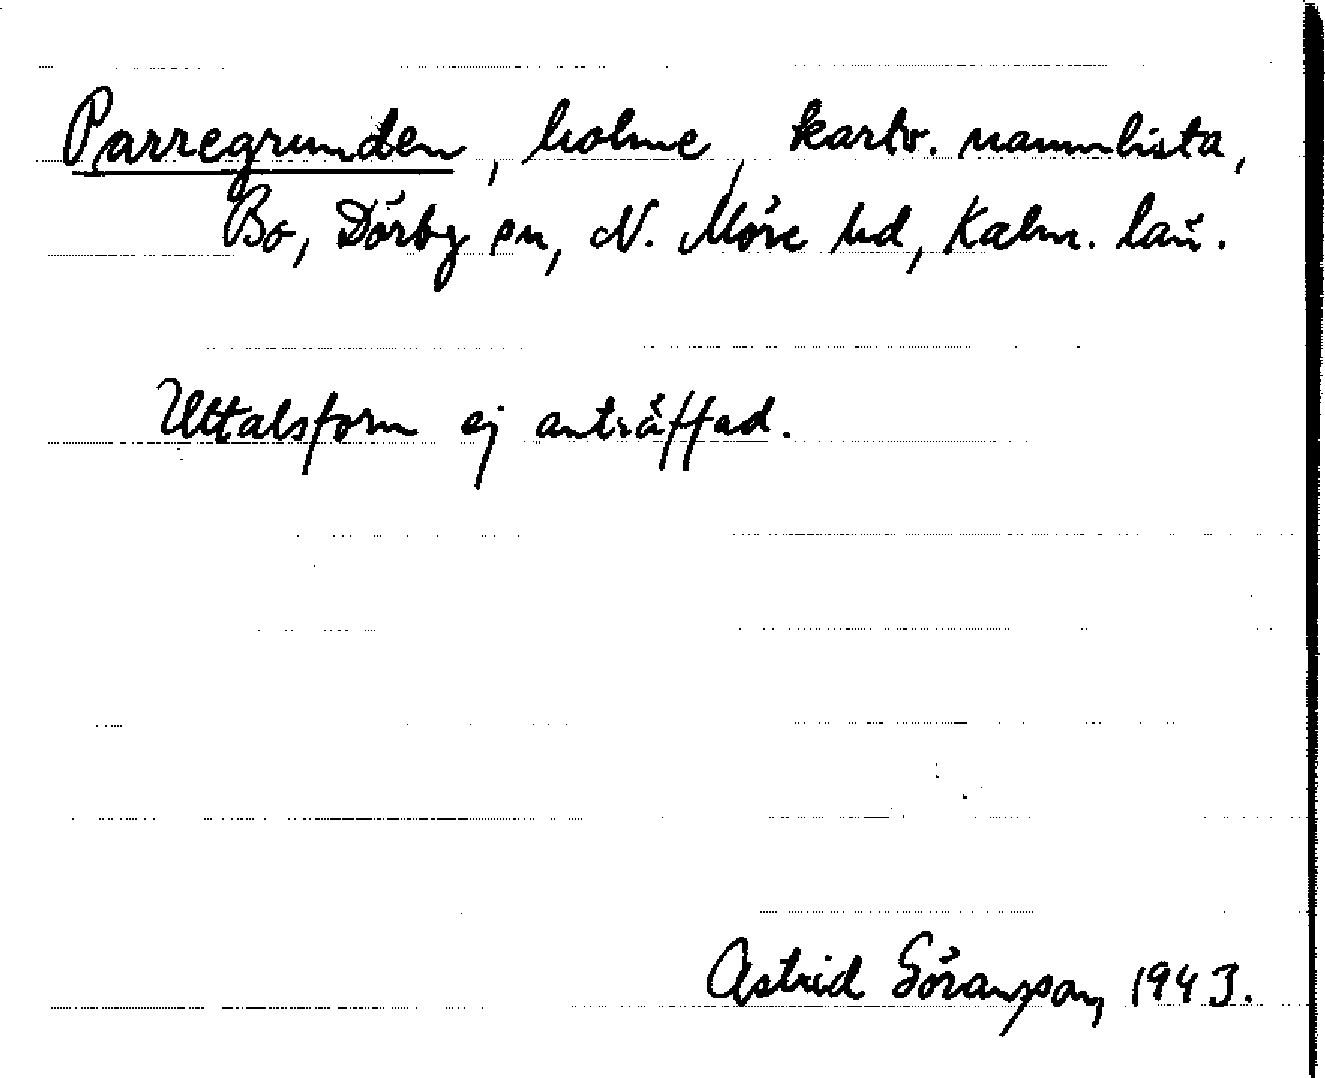 Parregrunden, holme, kartv. namnlista,
Bo, Dörby sn, N. Möre hd, Kalm. län.
Uttalsform ej anträffad.
Astrid Göransson, 1943.